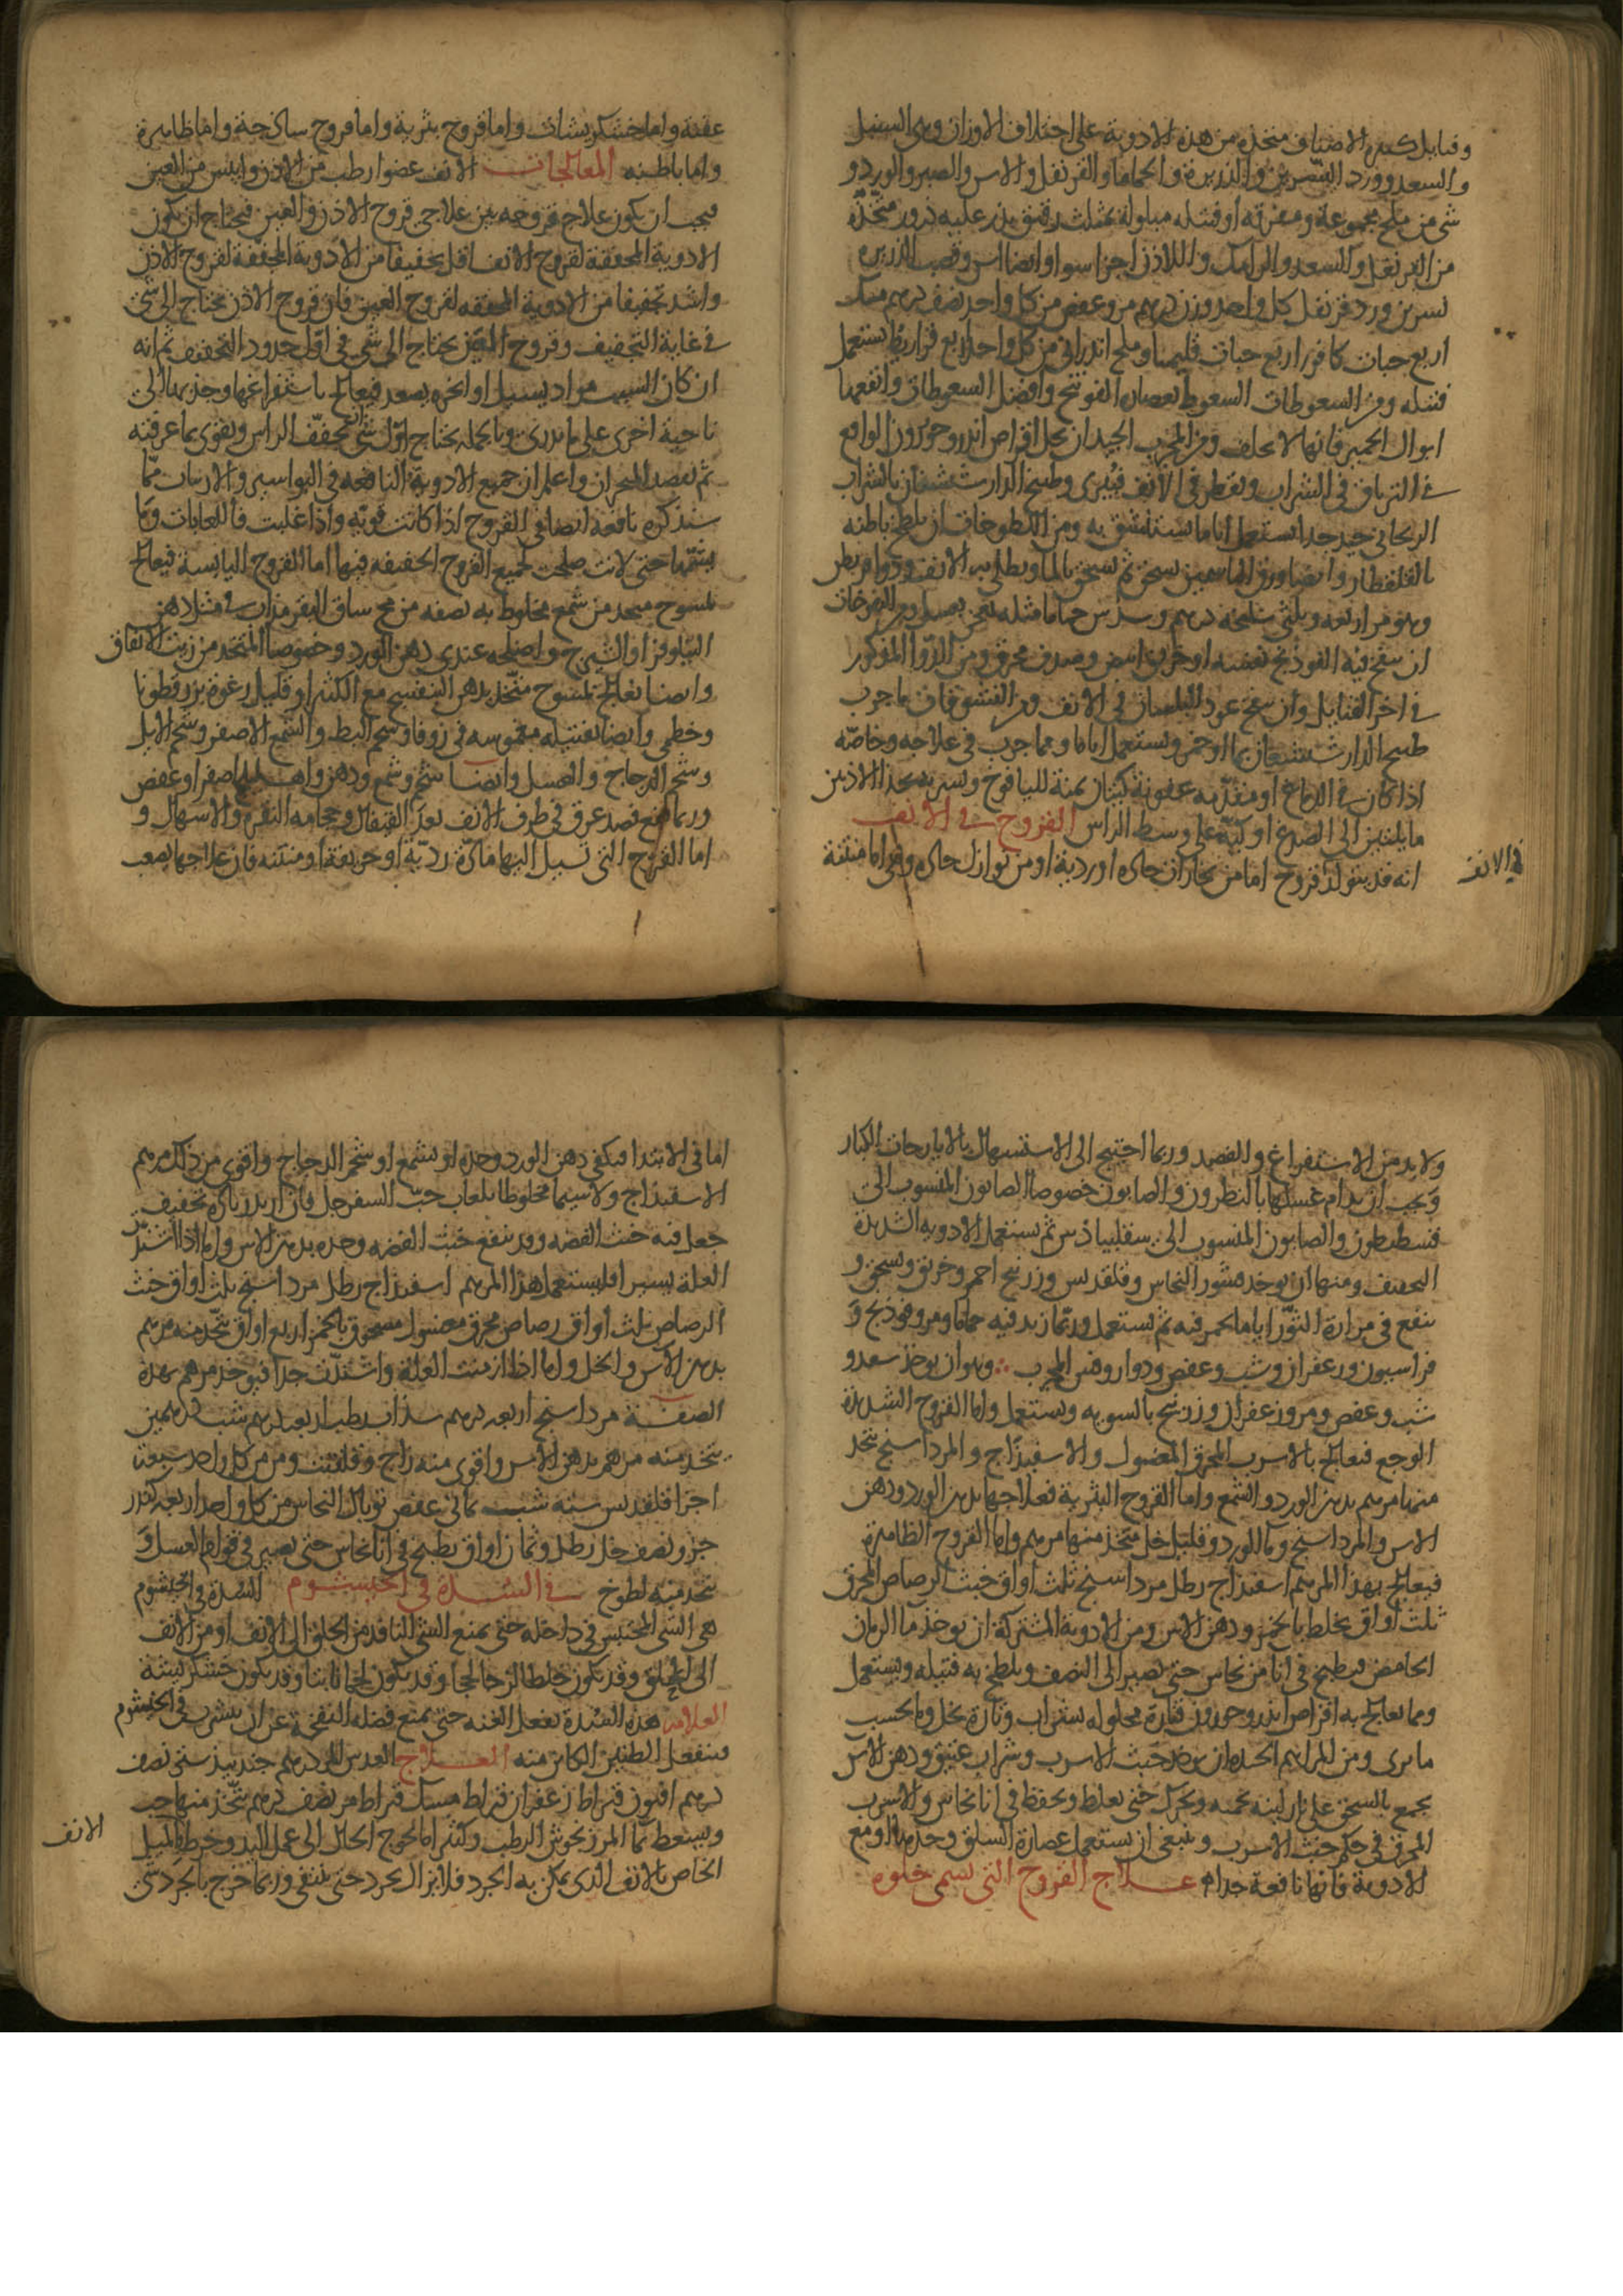 وفتايل كثيرة الاصناف متخذه من هذه الادوية على اختلاف الاوزان وهى السنبل
والسعد وورد النسرين والذريرة والحماما والقرنفل والاس والصبر والورد و
شى من ملح مجموعة ومفرقه او فتيله مبلولة بمثلث رقيق يذر عليه ذرور متخذه
من القرنفل والسعد والرامك واللاذن اجزا سوا وايضا اس وقصب الذريره
نسرين ورد قرنفل كل واحد وزن درهم مر وعفص من كل واحد نصف درهم مسك
اربع حبات كافور اربع حبات قليميا وملح اندرانى من كل واحد اربع قراريط يستعمل
فتيله ومن السعوطات السعوط بعصارة الفوتنج وافضل السعوطات وانفعها
ابوال الحمير فانها لا تخلف ومن المجرب الجيد ان يحل اقراص اندروخورون الواقع
فى الترياق فى الشراب ويقطر فى الانف فيبرى وطبيخ الدارشيشعان بالشراب
الريحانى جيد جدا يستعمل اياما يستنشق به ومن اللطوخات ان يلطخ باطنه
بالقلقطار وايضا ورق الياسمين يسحق ثم يسحق بالما ويطلى به الانف
وهو مر اربعه وثلثى سليخه درهم وسدس حماما مثله يعجن بعسل ومن النفوخات
ان ينفخ فيه الفوذنج نفسه او خربق ابيض وصدف محرق ومن الدوا المذكور
فى اخر الفتايل وان ينفخ عود البلسان فى الانف ومن النشوقات ما جرب
طبيخ الدارشيشعان بما او خمر ويستعمل اياما ومما جرب فى علاجه وخاصة
اذا كان فى الدماغ او مقدمه عفونة كيتان يمنة لليافوخ ويسره بحذا الاذنين
ما يلتين الى الصدغ او كية على وسط الراس القروح فى الانف
انه قد يتولد قروح اما من بخارات حاده او ردية او من نوازل حاده وهى اما منتنة
فى الانف
عفنة واما خشكريشات واما قروح بثرية واما قروح ساذجة واما ظاهرة
واما باطنه المعالجات الانف عضو ارطب من الاذن وايبس من العين
فيجب ان يكون علاج قروحه بين علاجى قروح الاذن والعين فيحتاج ان يكون
الادوية المجففة لقروح الانف اقل تجفيفا من الادوية المجففة لقروح الاذن
واشد تجفيفا من الادوية المجففه لقروح العين فان قروح الاذن تحتاج الى شى
فى غاية التجفيف وقروح العين يحتاج الى شى فى اول حدود التجفيف ثم انه
ان كان السبب مواد يسيل او ابخره يصعد فيعالج باستفراغها وجذبها الى
ناحية اخرى على ما تدرى وبالجمله يحتاج اول شى ان يجفف الراس ويقوى بما عرفته
ثم يقصد المنخران واعلم ان جميع الادوية النافعه فى البواسير والاربيان مما
سنذكره نافعه ايضا فى القروح اذا كانت قوية واذا غلبت فاللعابات وما
يشبهها حتى لانت صلحت لجميع القروح الخفيفه فيها اما القروح اليابسة فيعالج
بمسوح متخذ من شمع مخلوط به نصفه من مخ ساق البقر مذاب فى مثله دهن
النيلوفر او الشيرج واصلحه عندى دهن الورد وخصوصا المتخذ من زيت الانفاق
وايضا يعالج بمسوح متخذ بدهن البنفسج مع الكثيرا وقليل رغوة بزرقطونا
وخطمى وايضا بفتيله مغموسه فى زوفا وشحم البط والشمع الاصفر وشحم الايل
وشحم الدجاج والعسل وايضا شحم وشمع ودهن واهليلج اصفر او عفص
وربما نفع فصد عرق فى طرف الانف بعد القيفال وحجامه النقرة والاسهال و
اما القروح التى تسيل اليها مادة ردية او حريفة او منتنه فان علاجها يصعب
ولا بد من الاستفراغ والفصد وربما احتيج الى الاستسهال بالايارجات الكبار
ويجب ان يدام غسلها بالنطرون والصابون خصوصا الصابون المنسوب الى
قسطيطون والصابون المنسوب الى سقلبيادس ثم يستعمل الادويه الشديدة
التجفيف ومنها ان يوخذ قشور النحاس وقلقديس وزرنيخ احمر وخربق ويسحق و
ينقع فى مرارة الثور اياما يخمر فيه ثم يستعمل وربما زيد فيه حماما ومر وفوذنج و
فراسيون وزعفران وشب وعفص ودوا روفس المجرب وهو ان يوخذ سعد و
شب وعفص ومر وزعفران وزرنيخ بالسويه ويستعمل واما القروح الشديدة
الوجع فيعالج بالاسرب المحرق المغسول والاسفيذاج والمرداسنج يتخذ
منها مرهم بدهن الورد والشمع واما القروح البثرية فعلاجها بدهن الورد ودهن
الاس والمرداسنج وماالورد وقليل خل متخذ منها مرهم واما القروح الظاهرة
فيعالج بهذا المرهم اسفيذاج رطل مرداسنج ثلث اواق خبث الرصاص المحرق
ثلث اواق يخلط بالخمر ودهن الاس ومن الادوية المشتركة ان يوخذ ما الرمان
الحامض فيطبخ فى انا من نحاس حتى يصير الى النصف ويلطخ به فتيله ويستعمل
ومما يعالج به اقراص اندروخورون فتارة محلوله بشراب وتارة بخل وما بحسب
ما ترى ومن المراهم الجيده ان يوخذ خبث الاسرب وشراب عتيق ودهن الاس
يجمع بالسحق على نار لينه فحميه ويحرك حتى يغلظ ويحفظ فى انا نحاس والاسرب
المحرق فى حكم خبث الاسرب وينبغى ان يستعمل عصارة السلق وحدها او مع
الادوية فانها نافعة جدا علاج القروح التى تسمى حلوه
اما فى الابتدا فيكفى دهن الورد وحده او بشمع او شحم الدجاج واقوى من ذلك مرهم
الاسفيذاج ولا سيما مخلوطا بلعاب حب السفرجل فان اريد زيادة تجفيف
جعل فيه خبث الفضه وقد ينفع خبث الفضه وحده بدهن الاس واما اذا اشتد
العلة يسيرا فليستعمل هذا المرهم اسفيذاج رطل مرداسنج ثلث اواق خبث
الرصاص ثلث اواق رصاص محرق مغسول مسحوق بالخمر اربع اواق يتخذ منه مرهم
بدهن الاس والخل واما اذا ازمنت العلة واشتدت جدا فيوخذ مرهم بهذه
الصفة مرداسنج اربعه درهم سذاب رطب اربعه درهم شب درهمين
يتخذ منه مرهم بدهن الاس واقوى منه زاج وقلقنت ومر من كل واحد سبعة
اجزا قلقديس سته شب ثمانى عفص توبال النحاس من كل واحد اربعه كندر
جزو ونصف خل رطل وثمان اواق يطبخ فى انا نحاس حتى يصير فى قوام العسل و
يتخذ منه لطوخ فى السدة فى الخيشوم السدة فى الخيشوم
هى الشى المحتبس فى داخله حتى يمنع الشى النافذ من الحلق الى الانف او من الانف
الى الحلق وقد يكون خلطا لزجا لحجا وقد يكون لحما نابتا وقد يكون خشكريشة
العلامه هذه السدة تفعل الغنه حتى يمنع فضله النفخة عن ان يتسرب فى الخيشوم
فيفعل الطنين الكاين منه العلاج العدس المر درهم جندبيدستر نصف
درهم افيون قيراط زعفران قيراط مسك قيراط مر نصف درهم يتخذ منها حب
ويسعط بما المرزنجوش الرطب وكثيرا ما يحوج الحال الى عمل اليد وخرط بالميل
الخاص بالانف الذى يمكن به الجرد فلا يزال يجرد حتى ينقى وربما خرج بالجرد شى
الانف